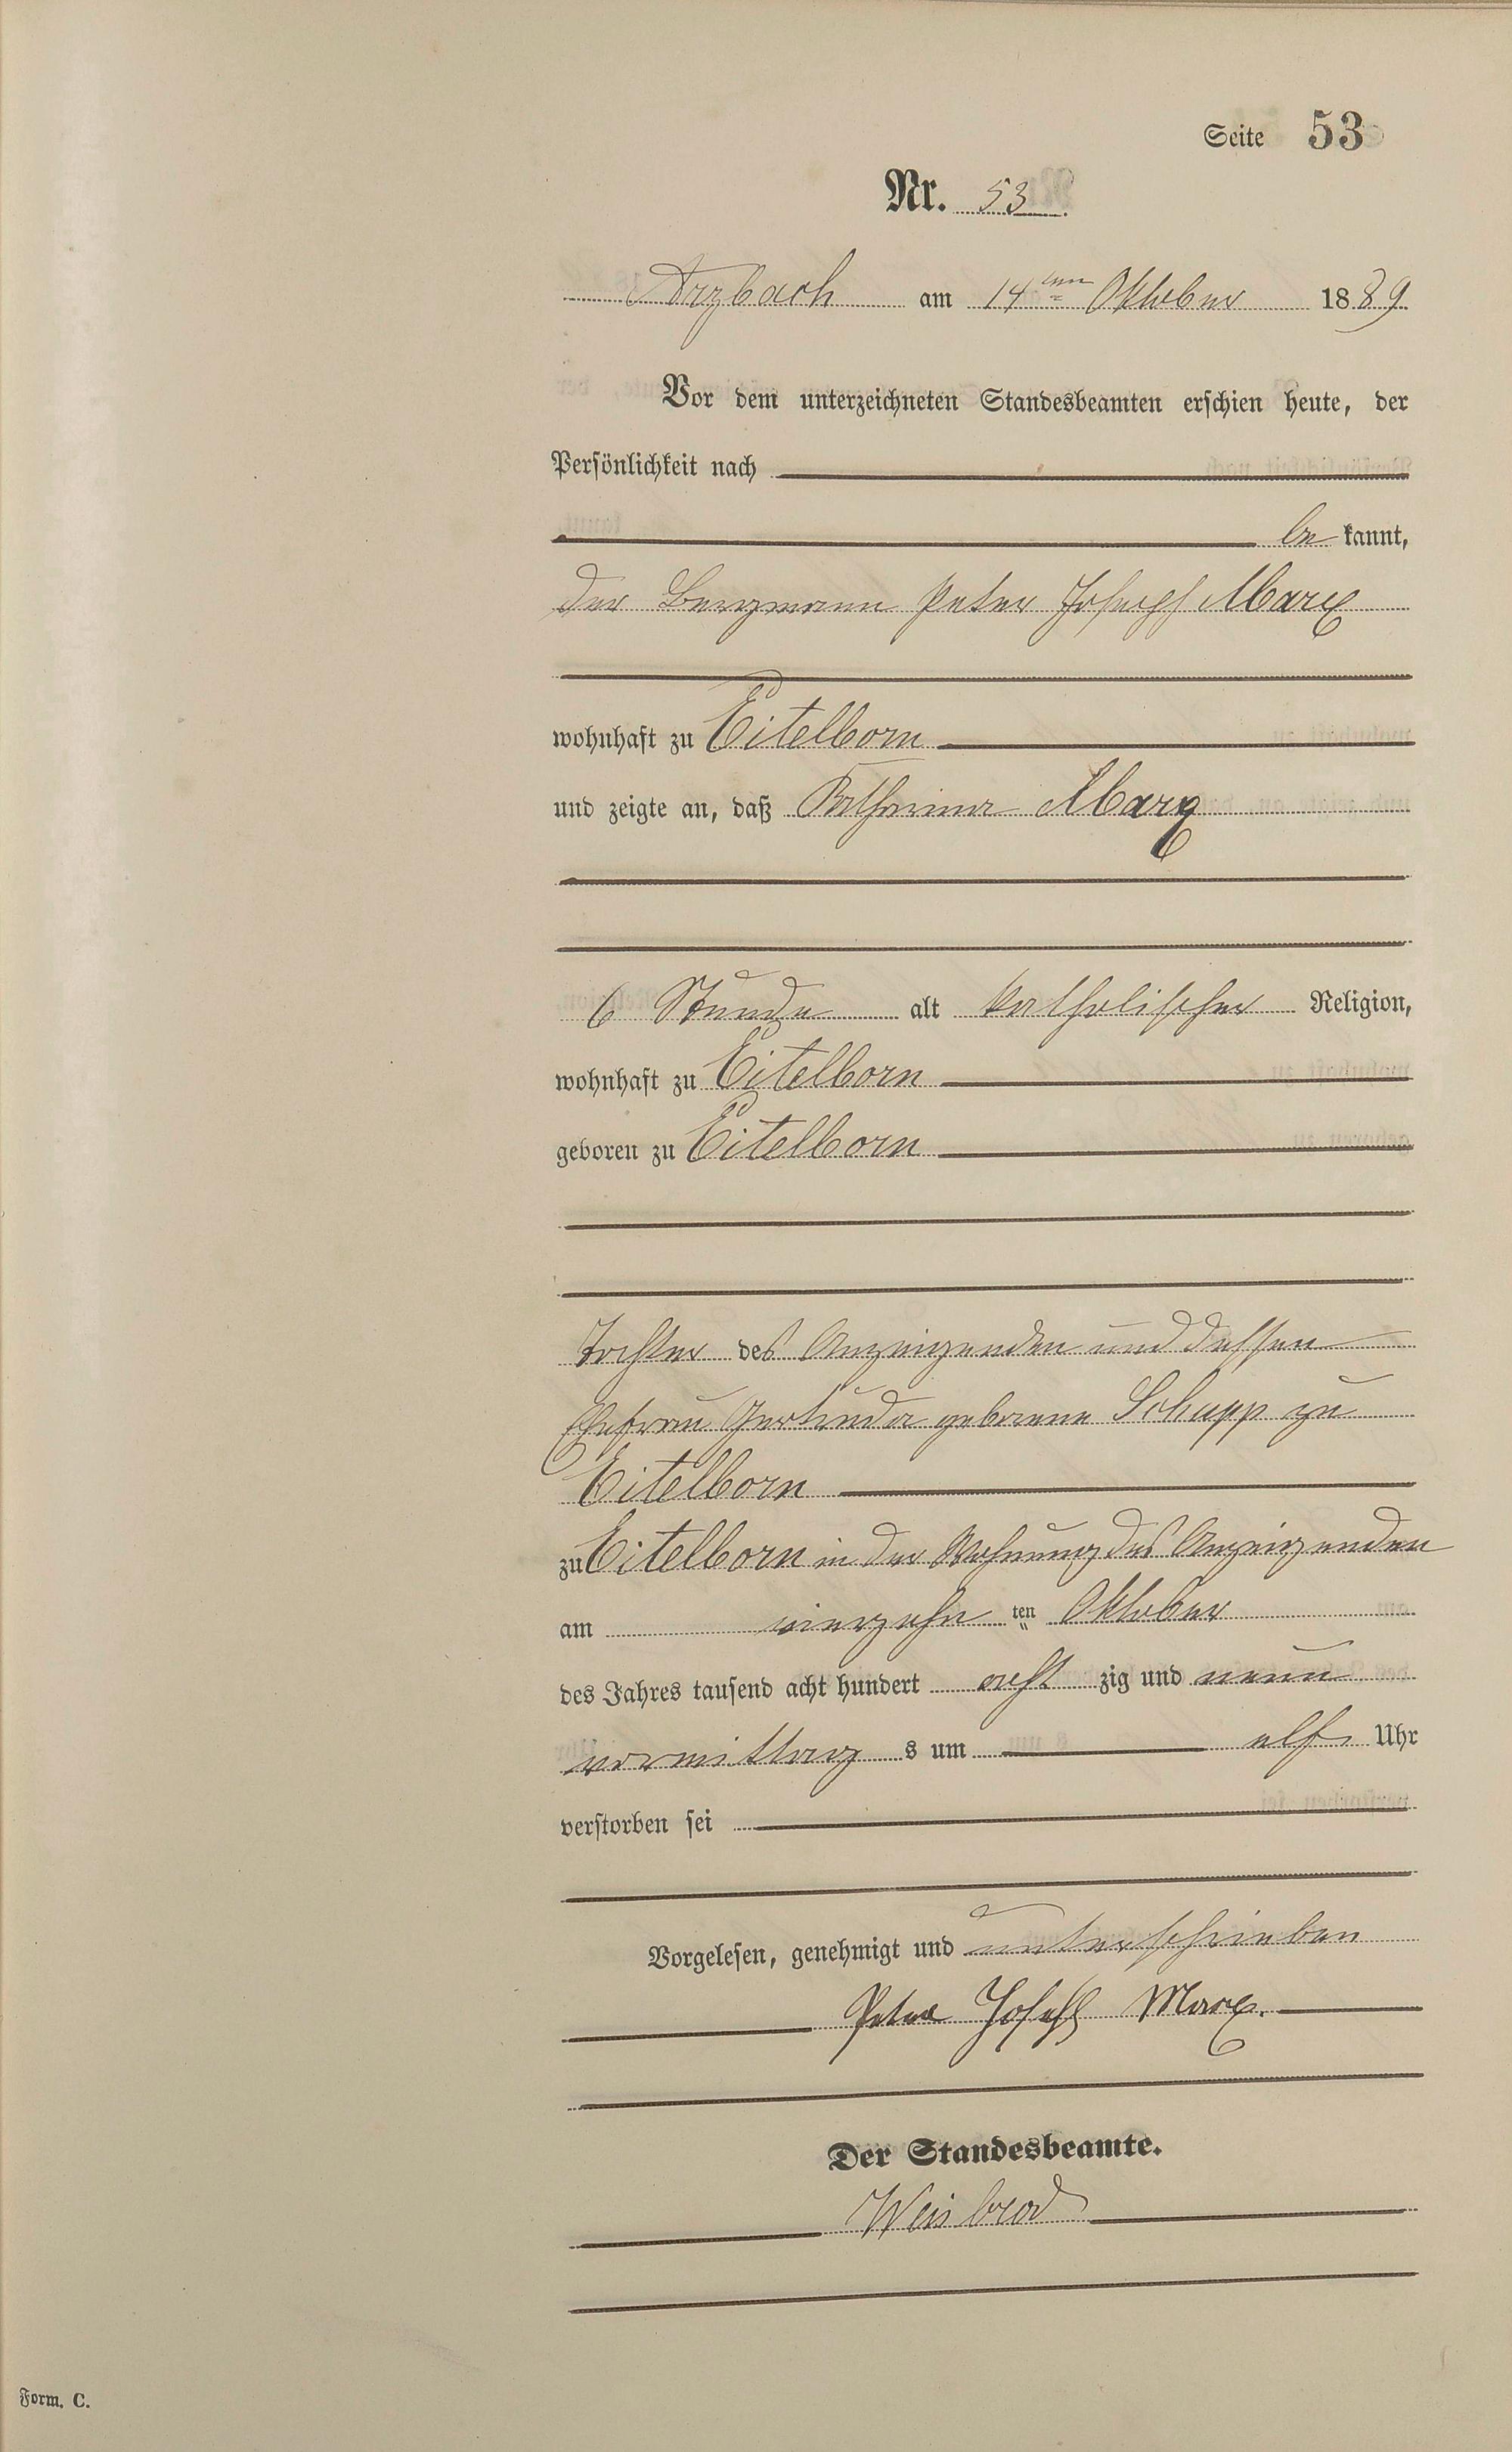 Seite 53
Nr. 53.
Arzbach am 14ten Oktober 1889
Vor dem unterzeichneten Standesbeamten erschien heute, der
Persönlichkeit nach
be kannt,
der Bergmann Peter Joseph Marx
wohnhaft zu Eitelborn
und zeigte an, daß Katharina Marx
6 Stunde alt katholischer Religion,
wohnhaft zu Eitelborn
geboren zu Eitelborn
Tochter des Anzeigenden und dessen
Ehefrau Gertruda geborene Schupp zu
Eitelborn
zu Eitelborn in der Wohnung des Anzeigenden
am vierzehn ten Oktober
des Jahres tausend acht hundert acht zig und neun
vormittag s um elf Uhr
verstorben sei
Vorgelesen, genehmigt und unterschrieben
Peter Joseph Marx.
Der Standesbeamte.
Weisbrod
Form. C.